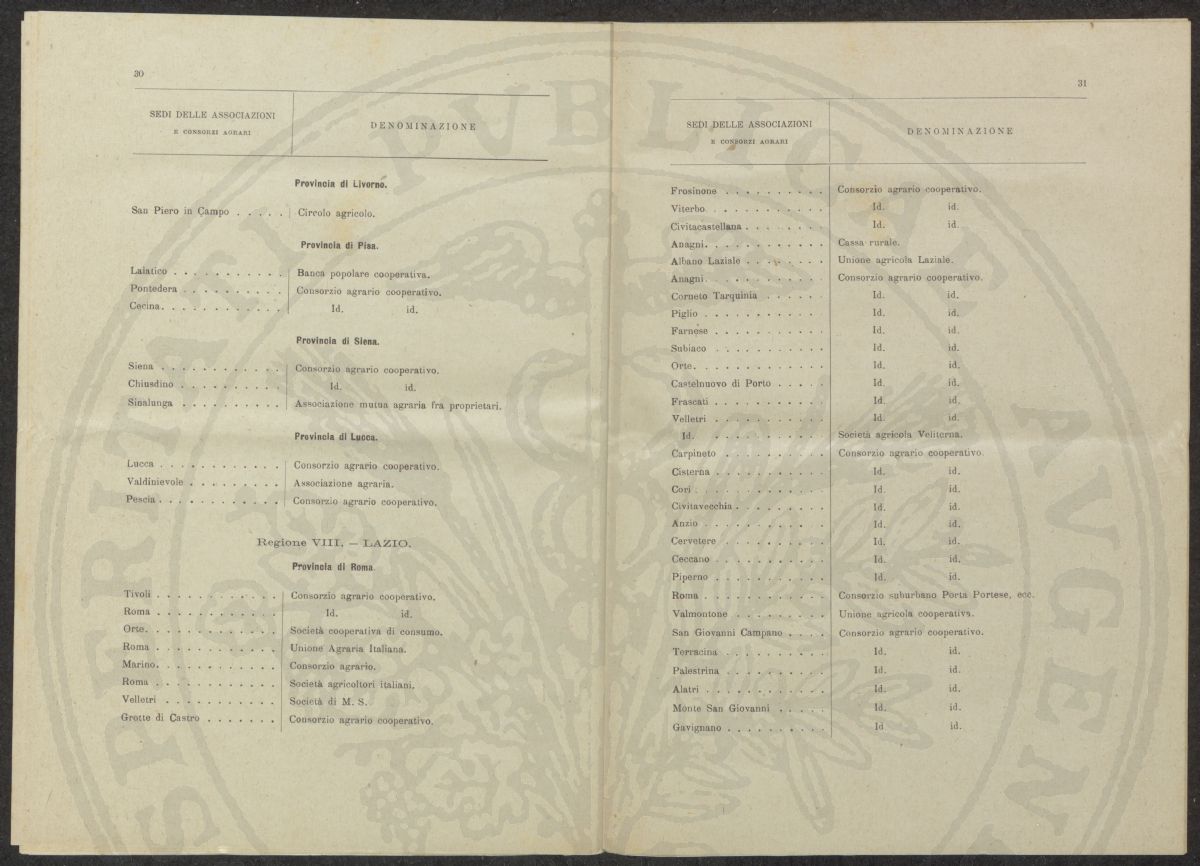 30
SEDI DELLE ASSOCIAZIONI
E CONSORZI AGRARI
DENOMINAZIONE
Provincia di Livorno.
San Piero in Campo . . . . . Circolo agricolo.
Provincia di Pisa.
Laiatico . . . . . . . . . . . Banca popolare cooperativa.
Pontedera . . . . . . . . . . Consorzio agrario cooperativo.
Cecina. . . . . . . . . . . . Id. id.
Provincia di Siena.
Siena . . . . . . . . . . . . Consorzio agrario cooperativo.
Chiusdino . . . . . . . . . . Id. id.
Sinalunga . . . . . . . . . . Associazione mutua agraria fra proprietari.
Provincia di Lucca.
Lucca . . . . . . . . . . . . Consorzio agrario cooperativo.
Valdinievole . . . . . . . . . Associazione agraria.
Pescia . . . . . . . . . . . . Consorzio agrario cooperativo.
Regione VIII. — LAZIO.
Provincia di Roma.
Tivoli . . . . . . . . . . . . Consorzio agrario cooperativo.
Roma . . . . . . . . . . . . Id. id.
Orte. . . . . . . . . . . . . Società cooperativa di consumo.
Roma . . . . . . . . . . . . Unione Agraria Italiana.
Marino. . . . . . . . . . . . Consorzio agrario.
Roma . . . . . . . . . . . . Società agricoltori italiani.
Velletri . . . . . . . . . . . Società di M. S.
Grotte di Castro . . . . . . . Consorzio agrario cooperativo.
31
SEDI DELLE ASSOCIAZIONI
E CONSORZI AGRARI
DENOMINAZIONE
Frosinone . . . . . . . . . . Consorzio agrario cooperativo.
Viterbo . . . . . . . . . . . Id. id.
Civitacastellana . . . . . . . . Id. id.
Anagni. . . . . . . . . . . . Cassa rurale.
Albano Laziale . . . . . . . . Unione agricola Laziale.
Anagni. . . . . . . . . . . . Consorzio agrario cooperativo.
Corneto Tarquinia . . . . . . Id. id.
Piglio . . . . . . . . . . . . Id. id.
Farnese . . . . . . . . . . . Id. id.
Subiaco . . . . . . . . . . . Id. id.
Orte. . . . . . . . . . . . . Id. id.
Castelnuovo di Porto . . . . . Id. id.
Frascati . . . . . . . . . . . Id. id.
Velletri . . . . . . . . . . . Id. id.
Id. . . . . . . . . . . . Società agricola Veliterna.
Carpineto . . . . . . . . . . Consorzio agrario cooperativo.
Cisterna . . . . . . . . . . . Id. id.
Cori . . . . . . . . . . . . . Id. id.
Civitavecchia . . . . . . . . . Id. id.
Anzio . . . . . . . . . . . . Id. id.
Cervetere . . . . . . . . . . Id. id.
Ceccano . . . . . . . . . . . Id. id.
Piperno . . . . . . . . . . . Id. id.
Roma . . . . . . . . . . . . Consorzio suburbano Porta Portese, ecc.
Valmontone . . . . . . . . . Unione agricola cooperativa.
San Giovanni Campano . . . . Consorzio agrario cooperativo.
Terracina . . . . . . . . . . Id. id.
Palestrina . . . . . . . . . . Id. id.
Alatri . . . . . . . . . . . . Id. id.
Monte San Giovanni . . . . . Id. id.
Gavignano . . . . . . . . . . Id id.